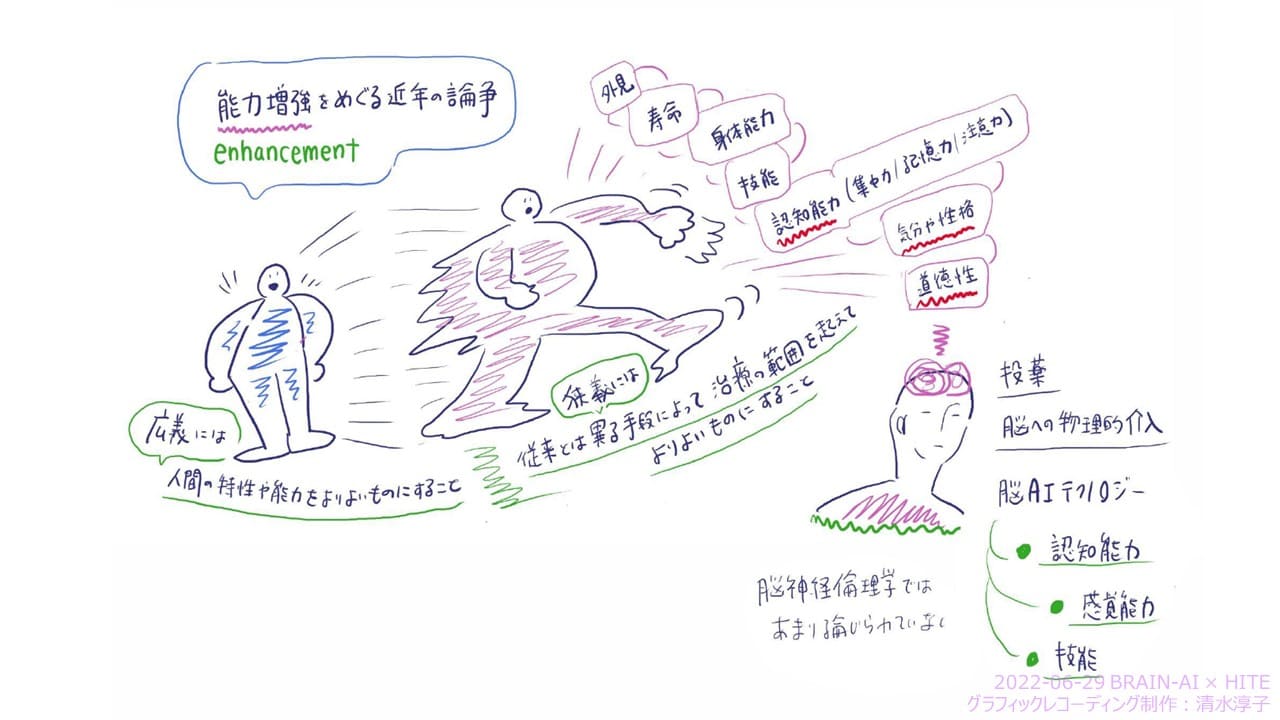 能力増強をめぐる近年の論争
enhancement
外見
寿命
身体能力
技能
認知能力(集中力/記憶力/注意力)
気分や性格
道徳性
広義には
人間の特性や能力をよりよいものにすること
狭義には
従来とは異る手段によって治療の範囲を超えて
よりよいものにすること
投薬
脳への物理的介入
脳AIテクノロジー
認知能力
感覚能力
技能
脳神経倫理学では
あまり論じられていない
2022-06-29 BRAIN-AI × HITE
グラフィックレコーディング制作:清水淳子